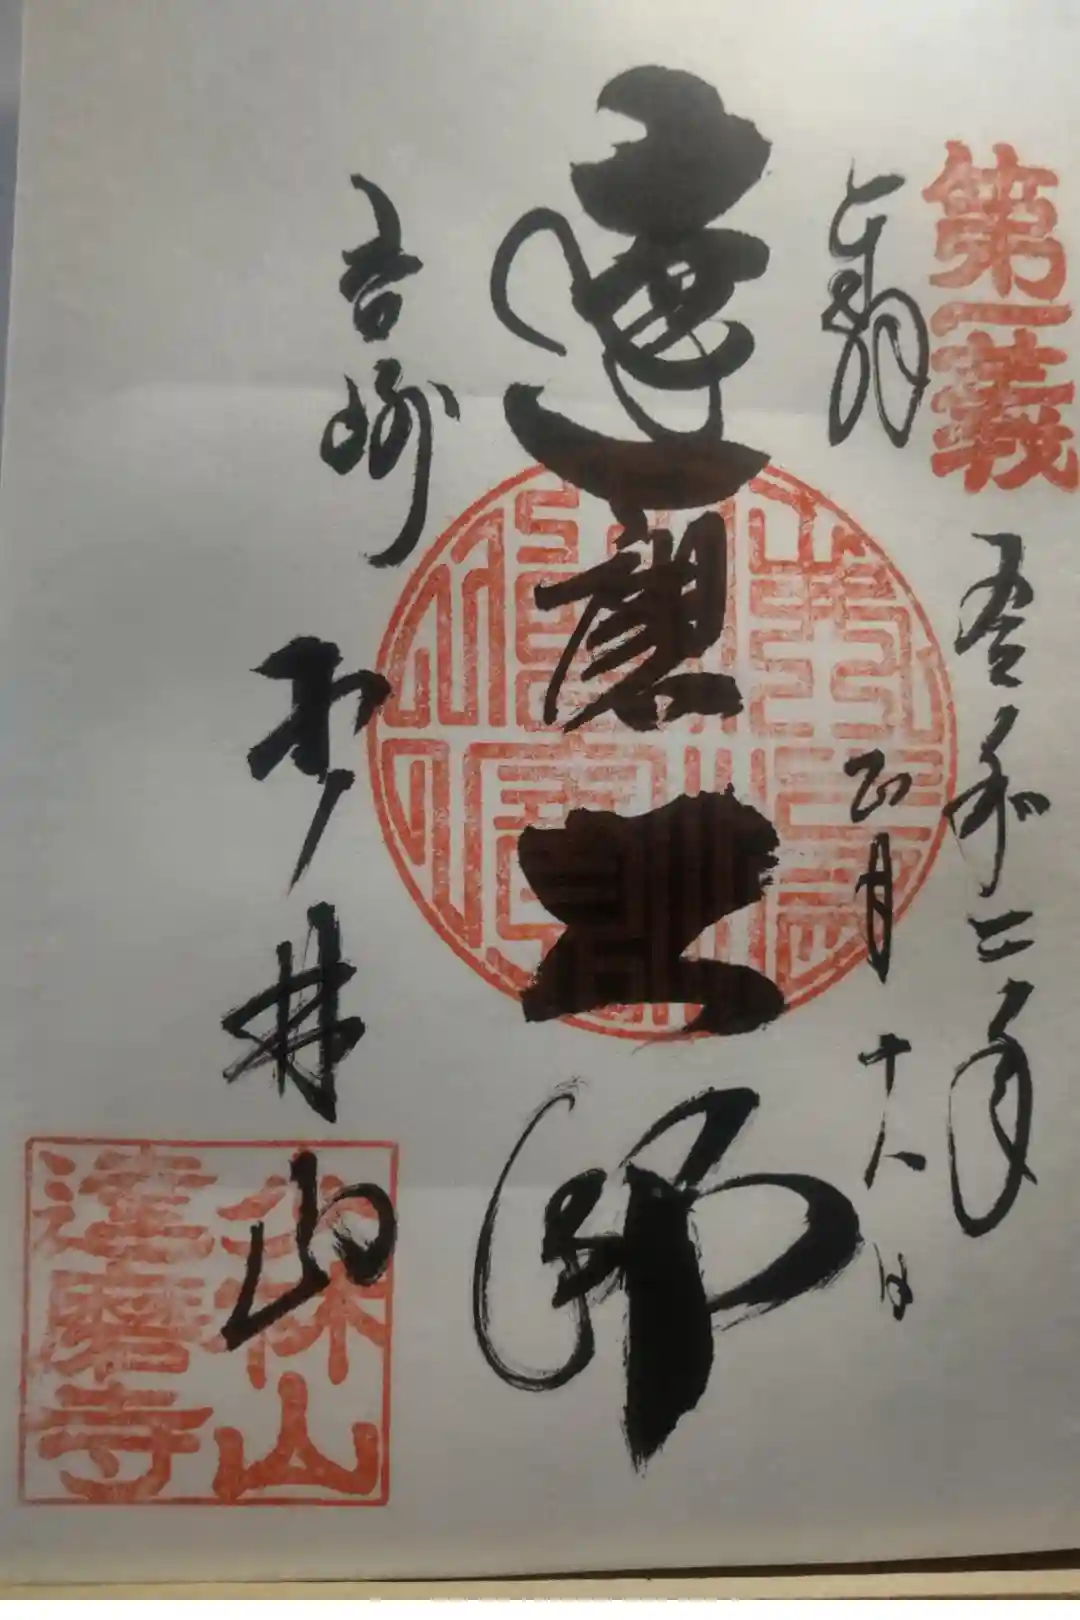 第一義
令和二年
奉拝
正月十八日
達磨大師
高崎
少林山
少林山
達磨寺